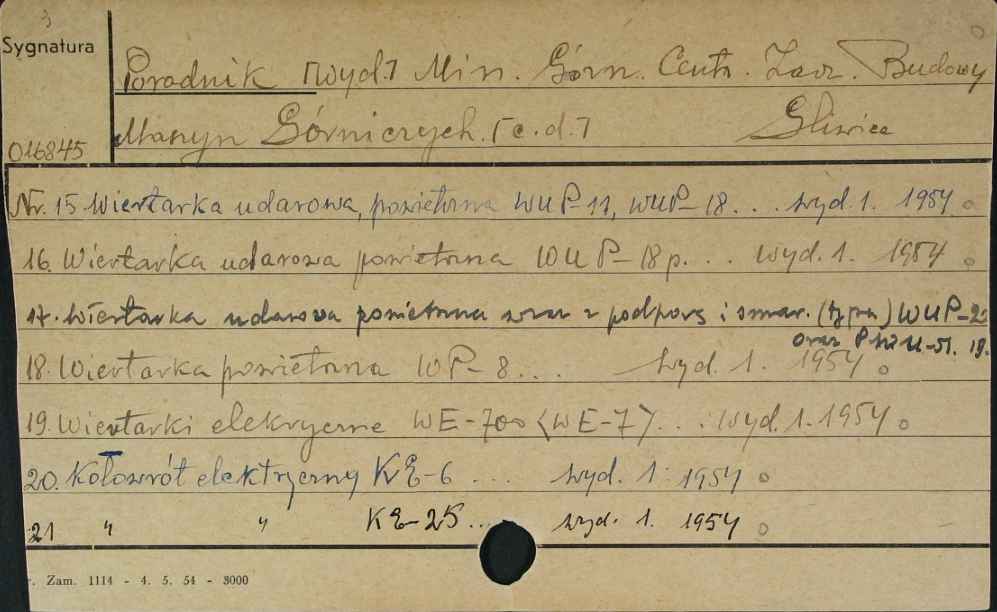 3
Sygnatura
Poradnik [wyd.] Min. Górn. Centr. Zarz. Budowy
016845 Maszyn Górniczych. [c.d.] Gliwice
Nr. 15 Wiertarka udarowa, powietrzna WUP-11, WUP-18... wyd. 1. 1954
16. Wiertarka udarowa powietrzna WUP-18p... wyd. 1. 1954
17. Wiertarka udarowa powietrzna wraz z podporą i smar. (typu) WUP-22
oraz 19.
18. Wiertarka powietrzna WP-8... wyd. 1. 1954
19. Wiertarki elekryczne WE-700 <WE-7>... wyd. 1. 1954
20. Kołowrót elektryczny KE-6 ... wyd. 1. 1954
21 " " KE-25... wyd. 1. 1954
r. Zam. 1114 - 4. 5. 54 - 3000